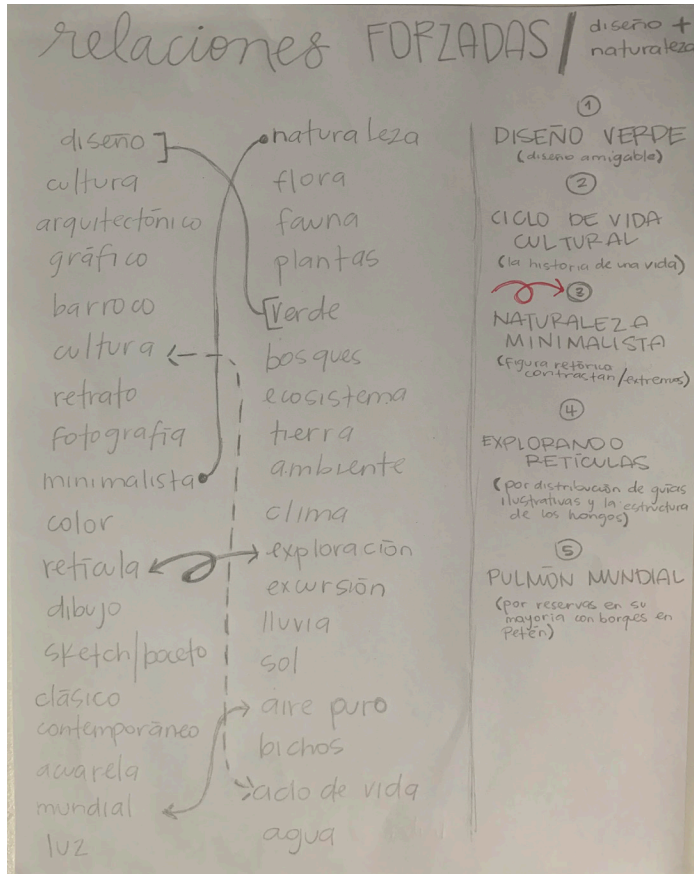 relaciones FORZADAS / diseño + naturaleza
diseño
cultura
arquitectónico
gráfico
barroco
cultura
retrato
fotografía
minimalista
color
retícula
dibujo
sketch/boceto
clásico
contemporáneo
acuarela
mundial
luz
naturaleza
flora
fauna
plantas
verde
bosques
ecosistema
tierra
ambiente
clima
exploración
excursión
lluvia
sol
aire puro
bichos
ciclo de vida
agua
1
DISEÑO VERDE
(diseño amigable)
2
CICLO DE VIDA
CULTURAL
(la historia de una vida)
3
NATURALEZA
MINIMALISTA
(figura retórica
contrastan/extremos)
4
EXPLORANDO
RETÍCULAS
(por distribución de guías
ilustrativas y la estructura
de los hongos)
5
PULMÓN MUNDIAL
(por reservas en su
mayoría con borques en
Petén)